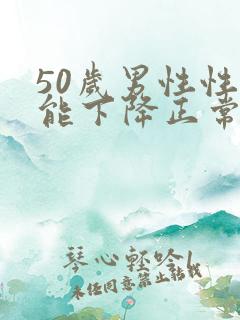 50歲男性性
能下降正常
琴心輕吟
未经同意禁止转载